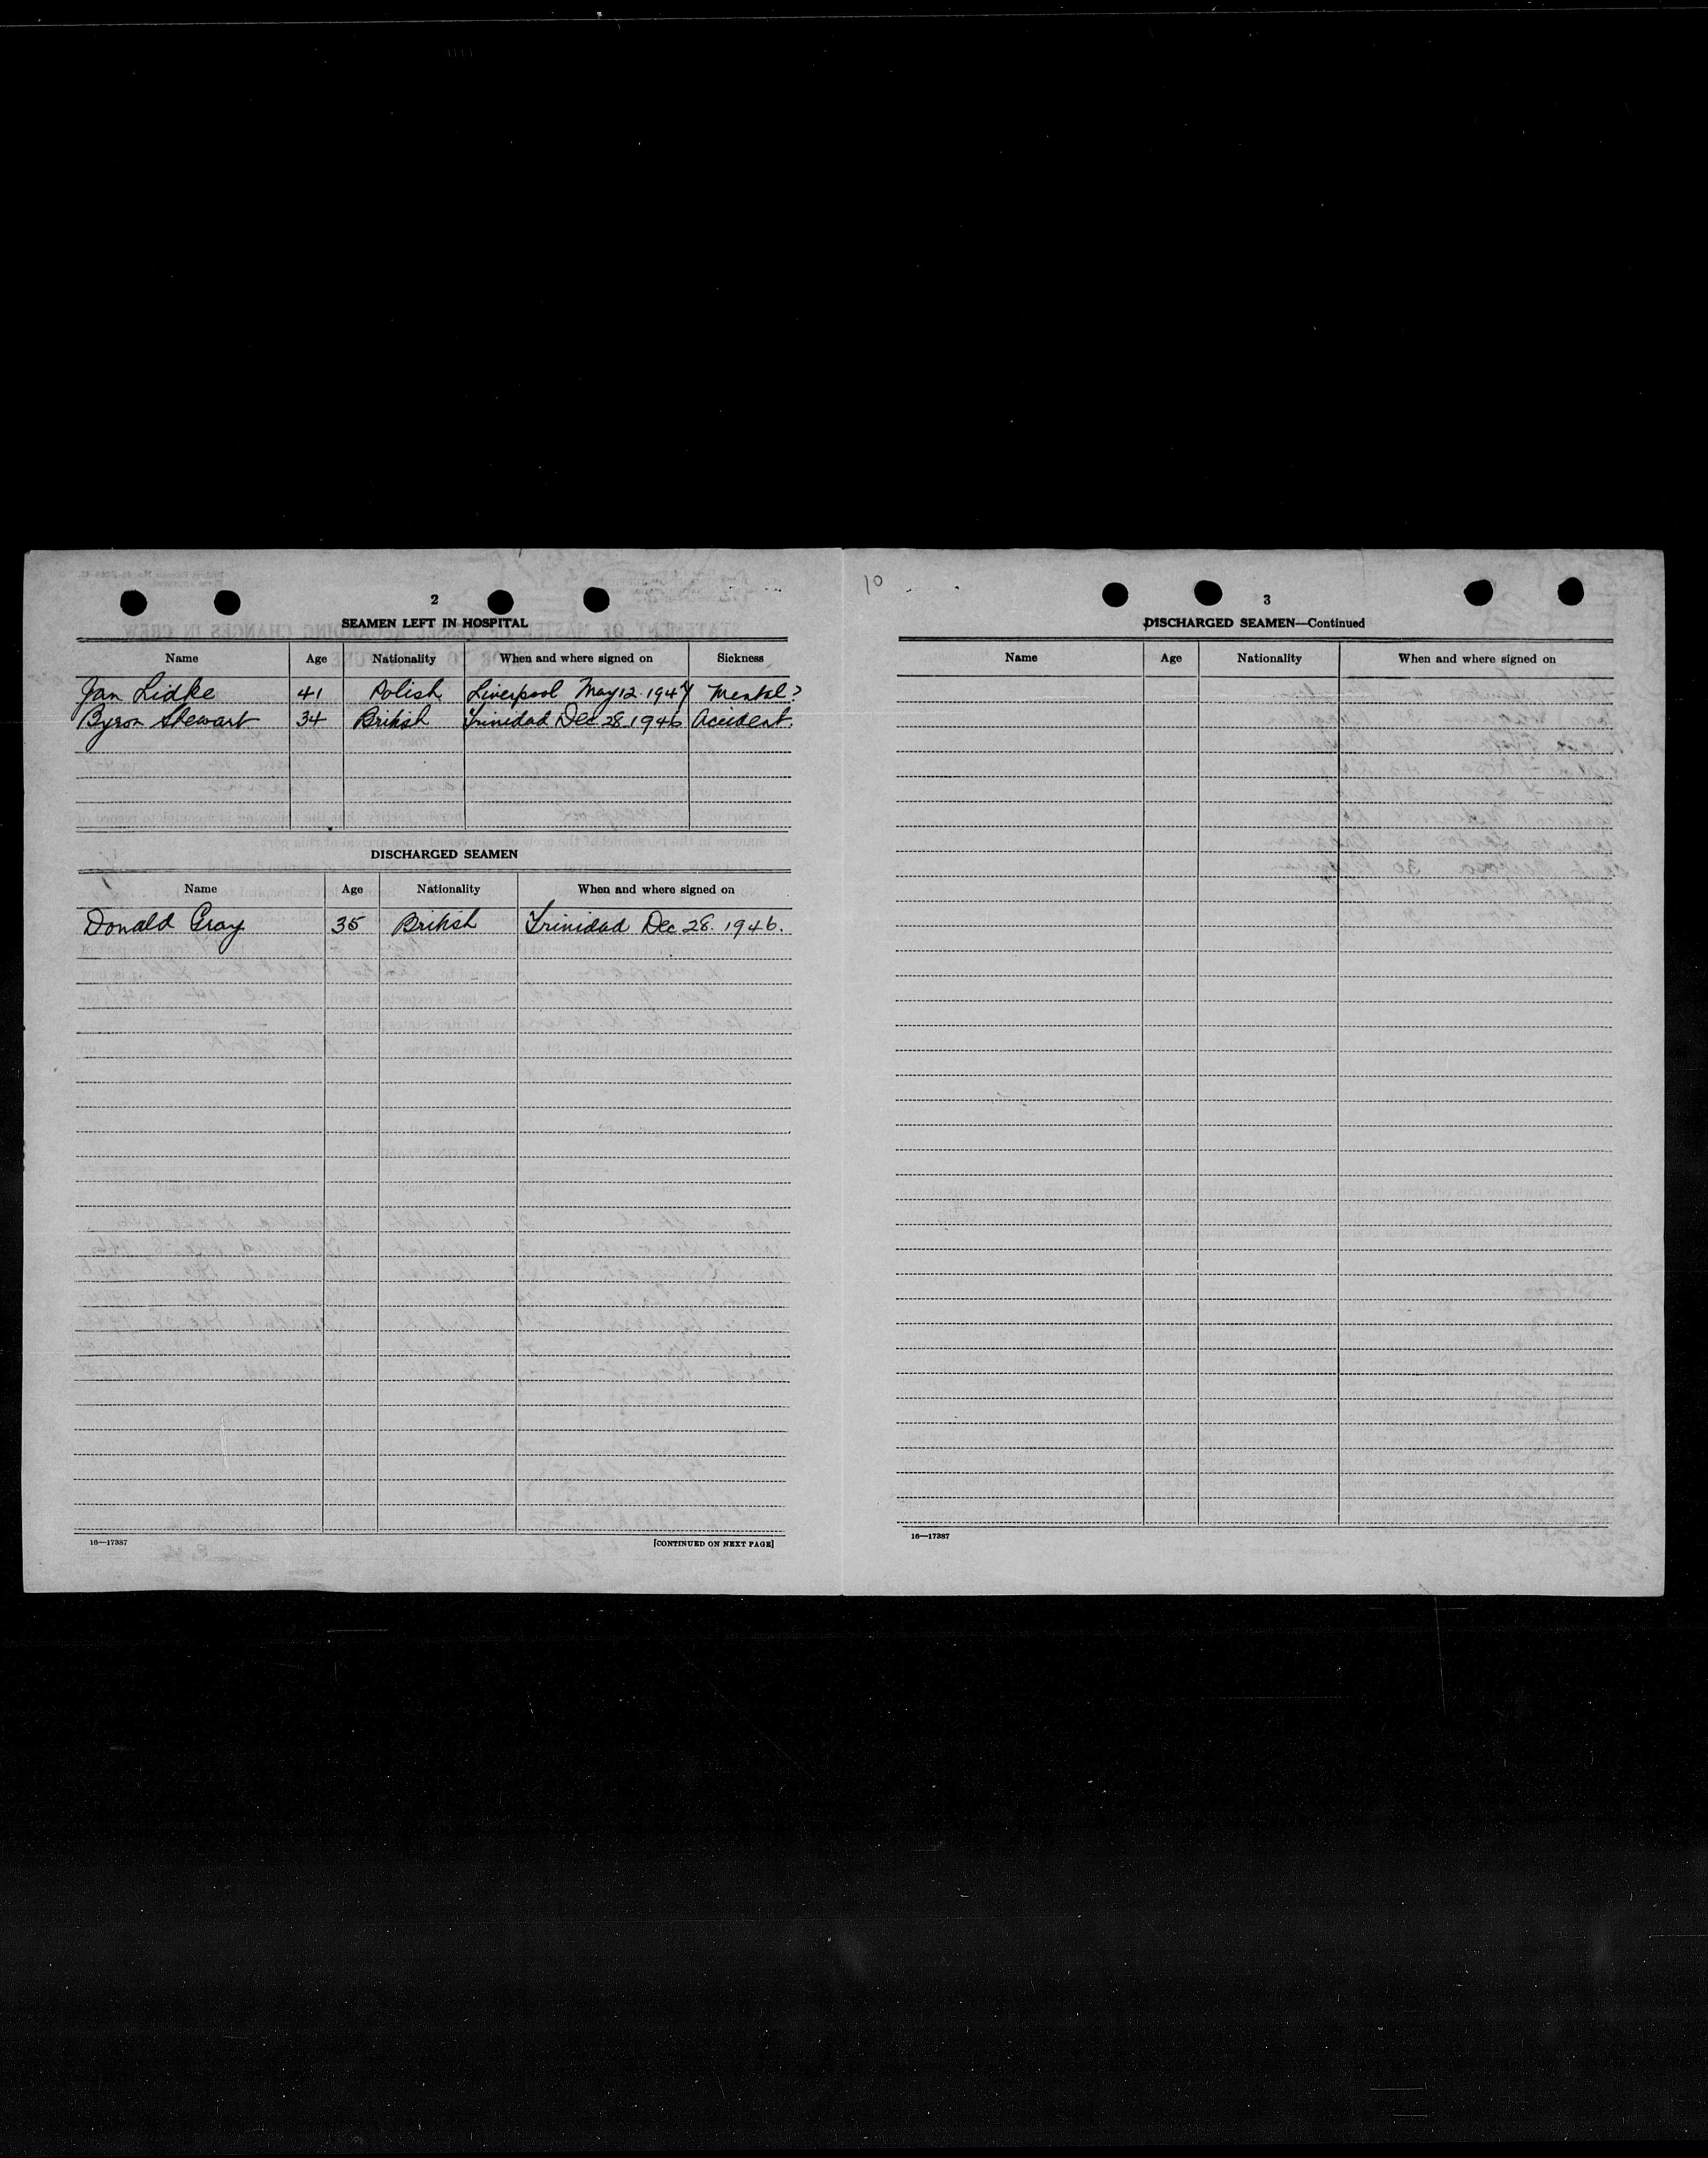 2
SEAMEN LEFT IN HOSPITAL
Name Age Nationality When and where signed on Sickness
Jan Lidke 41 Polish Liverpool May 12. 1947 Mental?
Byron Stewart 34 British Trinidad Dec 28. 1946 Accident.
DISCHARGED SEAMEN
Name Age Nationality When and where signed on
Donald Gray 35 British Trinidad Dec 28. 1946.
16—17387 [CONTINUED ON NEXT PAGE]
10
3
DISCHARGED SEAMEN—Continued
Name Age Nationality When and where signed on
16—17387